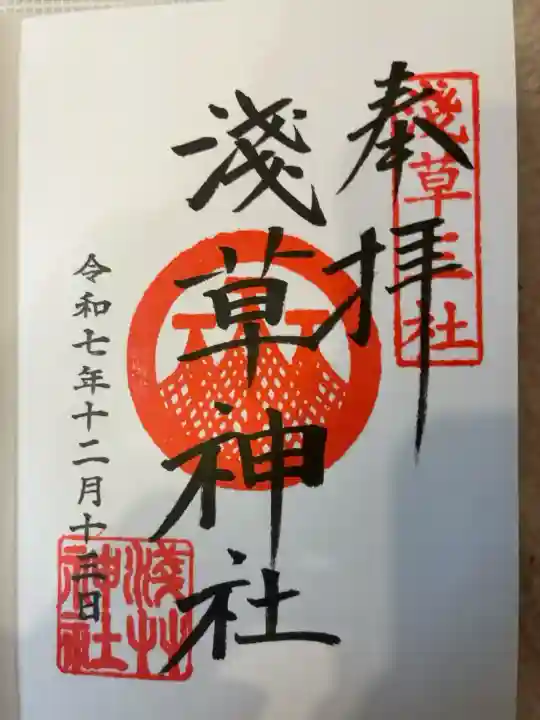 奉拝
淺草三社
淺草神社
令和七年十二月十三日
淺草
神社